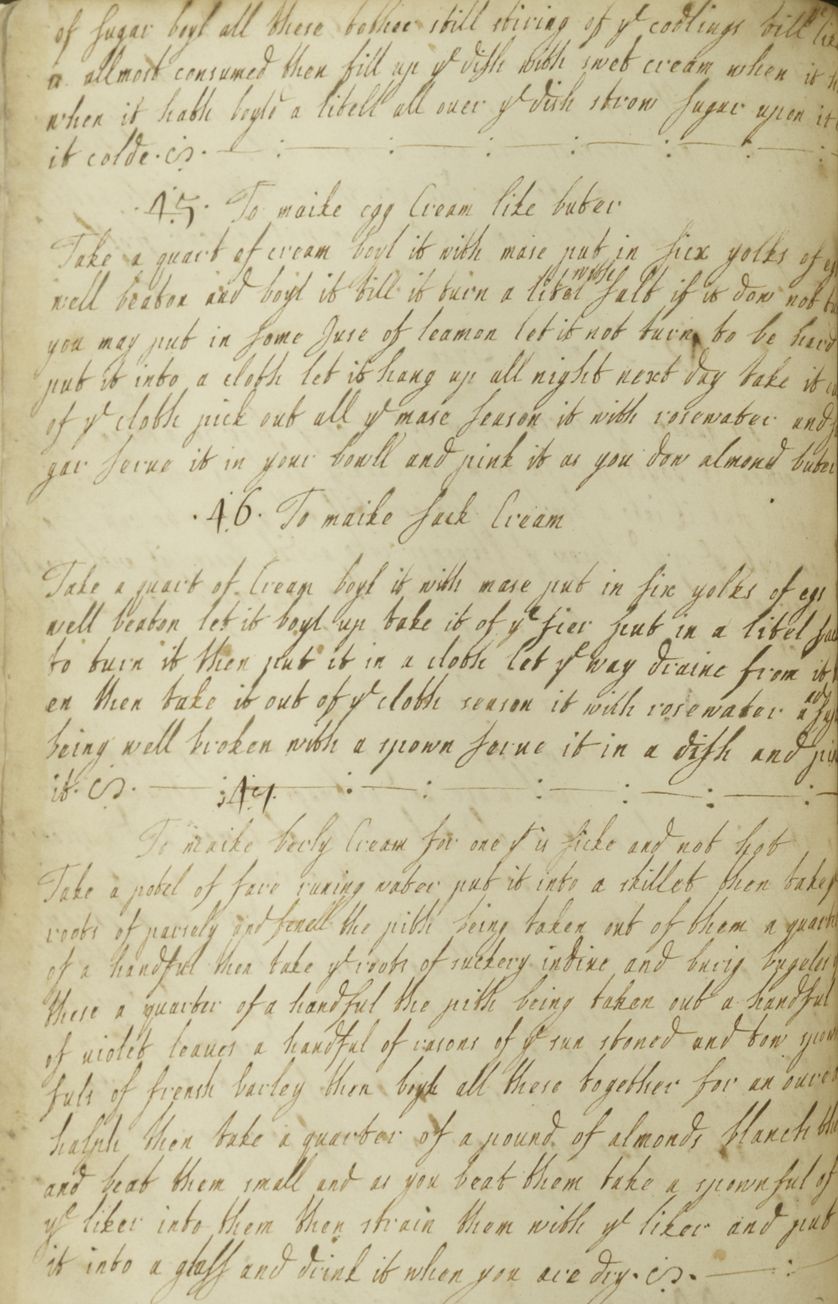 of sugar boyl all these tother still stiring of yͤ codlings till
allmost consumed then fill up yͤ dish with swet cream when it
when it hath boyld a litell all over yͤ dish strow sugar upon it
it colde.
.45. To maike egg Cream like buter
Take a quart of cream boyl it with mase put in six yolks of
well beaton and boyl it till it turn a litel salt if it dow not
you may put in some Juse of leamon let it not turn to be hard
put it into a cloth let it hang up all night next day take it
of yͤ cloth pick out all yͤ mase season it with rosewater and
gar serve it in your bowll and pink it as you dow almond buter
.46. To maike sack Cream
Take a quart of Cream boyl it with mase put in six yolks of egs
well beaton let it boyl up take it of yͤ fier put in a litel
to turn it then put it in a cloth let yͤ way draine from it
en then take it out of yͤ cloth season it with rosewater and
being well broken with a spown serve it in a dish and
it.
47
To maike berly Cream for one yͭ is sicke and not hot
Take a potel of fare runing water put it into a skillet then take
roots of parsely and fenell the pith being taken out of them a quarter
of a handful then take yͤ roots of suckery indive and
these a quarter of a handful the pith being taken out a handful
of violet leaves a handful of rasons of yͤ sun stoned and tow spown
fuls of french barley then boyle all these together for an
halph then take a quarter of a pound of almonds blanch
and beat them small and as you beat them take a spownful of
yͤ liker into them then strain them with yͤ liker and put
it into a glass and drink it when you are dry.